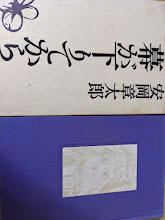 幕が下りてから
安岡章太郎